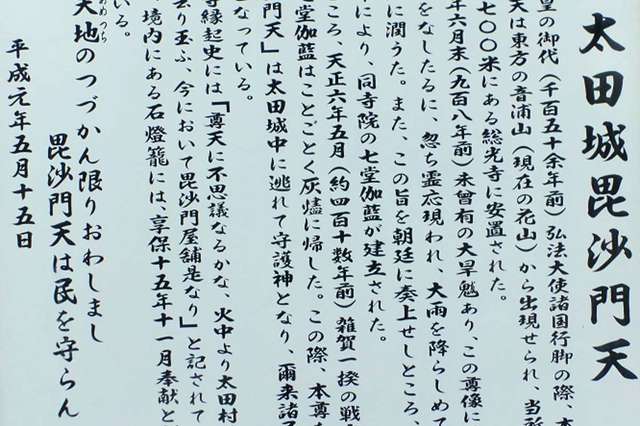 太田城毘沙門天
皇の御代（千百五十余年前）弘法大使諸国行脚の際、本
天は東方の音浦山（現在の花山）から出現せられ、当所
七〇〇米にある総光寺に安置された。
年六月末（九百八年前）未曽有の大旱魃あり、この尊像に
をなしたるに、忽ち霊応現われ、大雨を降らしめて
に潤うた。また、この旨を朝廷に奏上せしところ、
により、同寺院の七堂伽藍が建立された。
ころ、天正六年五月（約四百十数年前）雑賀一揆の戦
七堂伽藍はことごとく灰燼に帰した。この際、本尊
門天」は太田城中に逃れて守護神となり、爾来諸
なっている。
寺縁起史には「尊天に不思議なるかな、火中より太田村
去り玉ふ、今において毘沙門屋舗是なり」と記されて
、境内にある石燈籠には、享保十五年十一月奉献と
いる。
天地のつづかん限りおわしまし
あめつち
毘沙門天は民を守らん
平成元年五月十五日